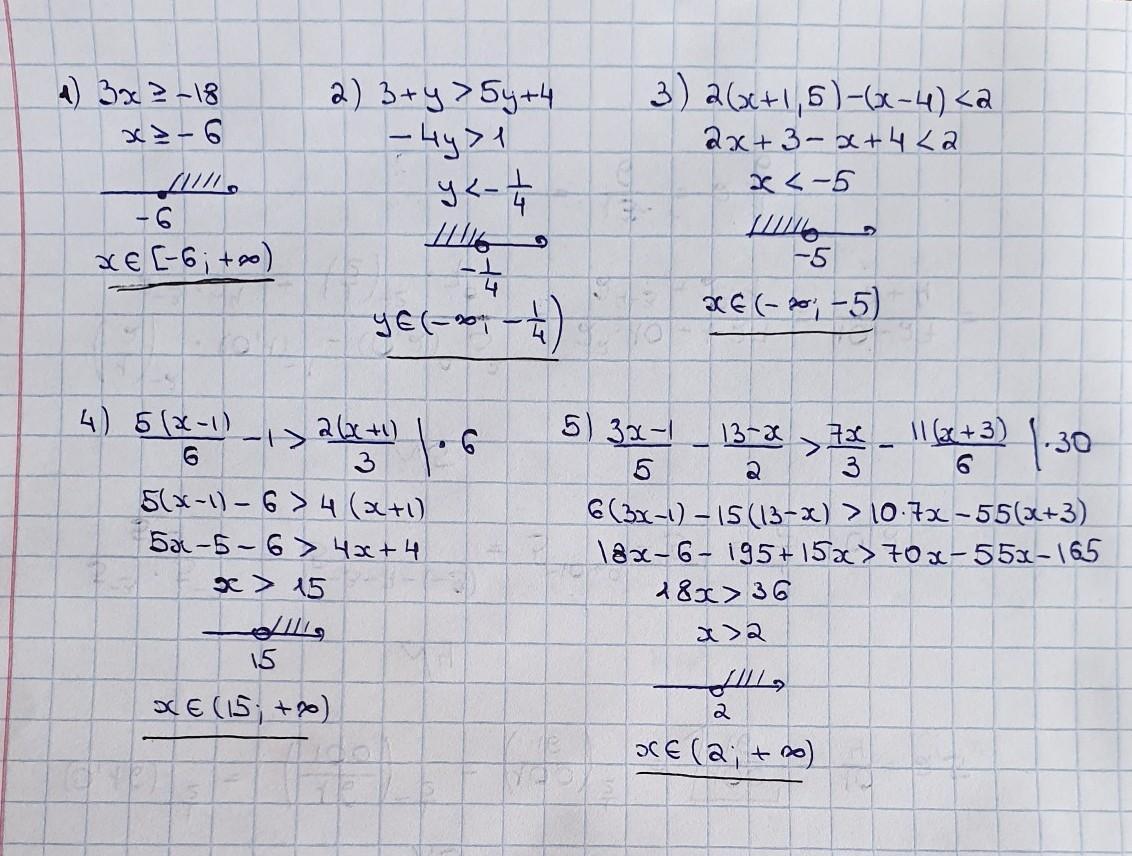 1) 3x ≥ -18
x ≥ -6
-6
x ∈ [-6; +∞)
2) 3+y > 5y+4
-4y > 1
y < -1/4
-1/4
y ∈ (-∞; -1/4)
3) 2(x+1,5)-(x-4) < 2
2x+3-x+4 < 2
x < -5
-5
x ∈ (-∞; -5)
4) 5(x-1)/6 - 1 > 2(x+1)/3 | · 6
5(x-1) - 6 > 4(x+1)
5x-5-6 > 4x+4
x > 15
15
x ∈ (15; +∞)
5) 3x-1/5 - 13-x/2 > 7x/3 - 11(x+3)/6 | · 30
6(3x-1) - 15(13-x) > 10·7x - 55(x+3)
18x-6-195+15x > 70x-55x-165
18x > 36
x > 2
2
x ∈ (2; +∞)